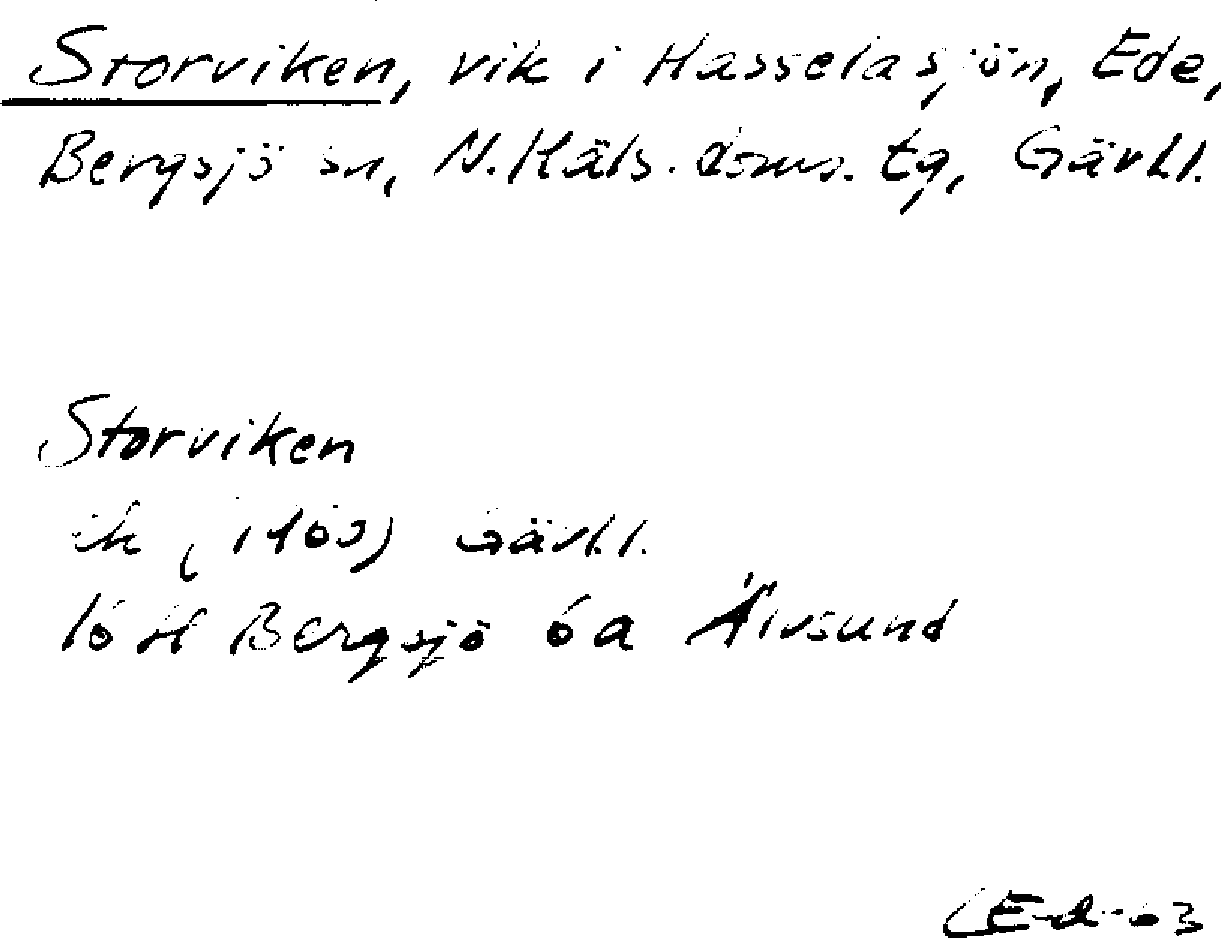 Storviken, vik i Hasselasjön, Ede,
Bergsjö sn, N. Häls. doms. tg, Gävl.l.
Storviken
ek Gävl.l.
16 H Bergsjö 6a Älvsund